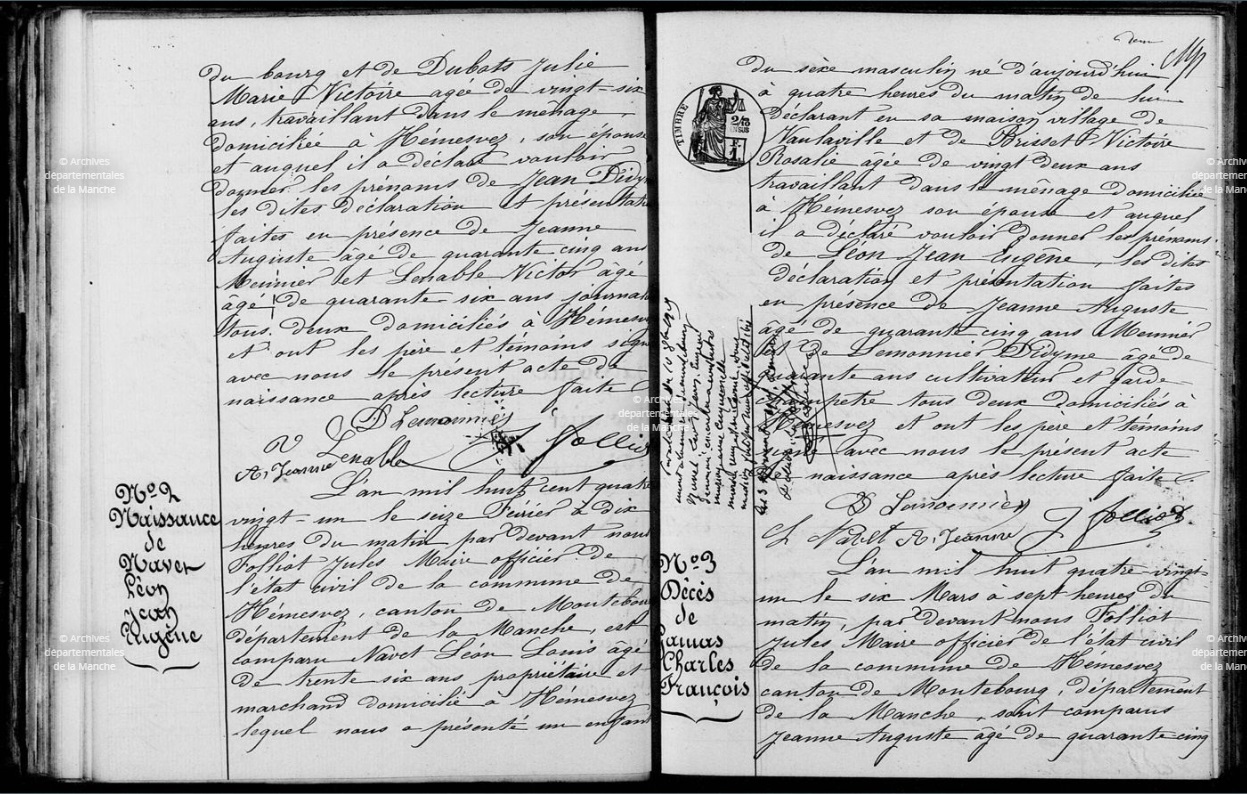 du bourg et de Dubots Julie
Marie Victoire agée de vingt-six
ans, travaillant dans le ménage,
domiciliée à Hémesvez, son épouse
et auquel il a déclaré vouloir
donner les prénoms de Jean Didy
les dites déclaration et présentati
faites en présence de Jeanne
Auguste âgé de quarante cinq ans
Meunier et Lenable Victor âgé
âgé de quarante six ans journal
tous deux domiciliés à Hémesv
et ont les père et témoins sign
avec nous le présent acte de
naissance après lecture faite
D Lemonnier
V Lenable
J Folliot
A. Jeanne
No 2
Naissance
de
Navet
Léon
Jean
Eugène
L'an mil huit cent quatre
vingt-un le seize Février à dix
heures du matin par devant nous
Folliot Jules Maire officier de
l'état civil de la commune de
Hémesvez, canton de Montebour
département de la Manche, est
comparu Navet Léon Louis âgé
de trente six ans propriétaire et
marchand domicilié à Hémesvez
lequel nous a présenté un enfant
deux
TIMBRE
du sèxe masculin né d'aujourd'hui
à quatre heures du matin de lui
Déclarant en sa maison village de
Vaulaville et de Brisset Victoire
Rosalie agée de vingt deux ans
travaillant dans le ménage domiciliée
à Hémesvez son épouse et auquel
il a déclaré vouloir donner les prénoms
de Léon Jean Eugène, les dites
déclaration et présentation faites
en présence de Jeanne Auguste
âgé de quarante cinq ans Meunier
et de Lemonnier Didyme âgé de
quarante ans cultivateur et garde
champetre tous deux domiciliés à
Hémesvez et ont les père et temoins
signé avec nous le présent acte
de naissance après lecture faite.
D Lemonnier
J Folliot
L Navet A. Jeanne
No 3
Décès
de
Lamas
Charles
François
L'an mil huit quatre vingt-
un le six Mars à sept heures du
matin, par devant nous Folliot
Jules Maire officier de l'état civil
de la commune de Hémesvez
canton de Montebourg, département
de la Manche, sont comparus
Jeanne Auguste agé de quarante cinq
© Archives
départementales
de la Manche
© Archives
départementales
de la Manche
© Archives
départementales
de la Manche